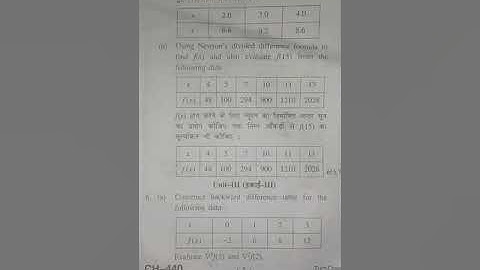 x 2.0 3.0 4.0
(b) Using Newton's divided difference formula to
find f(x) and also evaluate f(15) from the
following data :
x 4 5 7 10 11 13
f(x) 48 100 294 900 1210 2028
f(x) ज्ञात करने के लिए न्यूटन का विभाजित अन्तर सूत्र
का प्रयोग कीजिए तथा निम्न आँकड़ों से f(15) का
मूल्यांकन भी कीजिए :
x 4 5 7 10 11 13
f(x) 48 100 294 900 1210 2028
Unit–III (इकाई–III)
(a) Construct backward difference table for the
following data :
x 0 1 2 3
f(x) 12
Evaluate and
CH–440